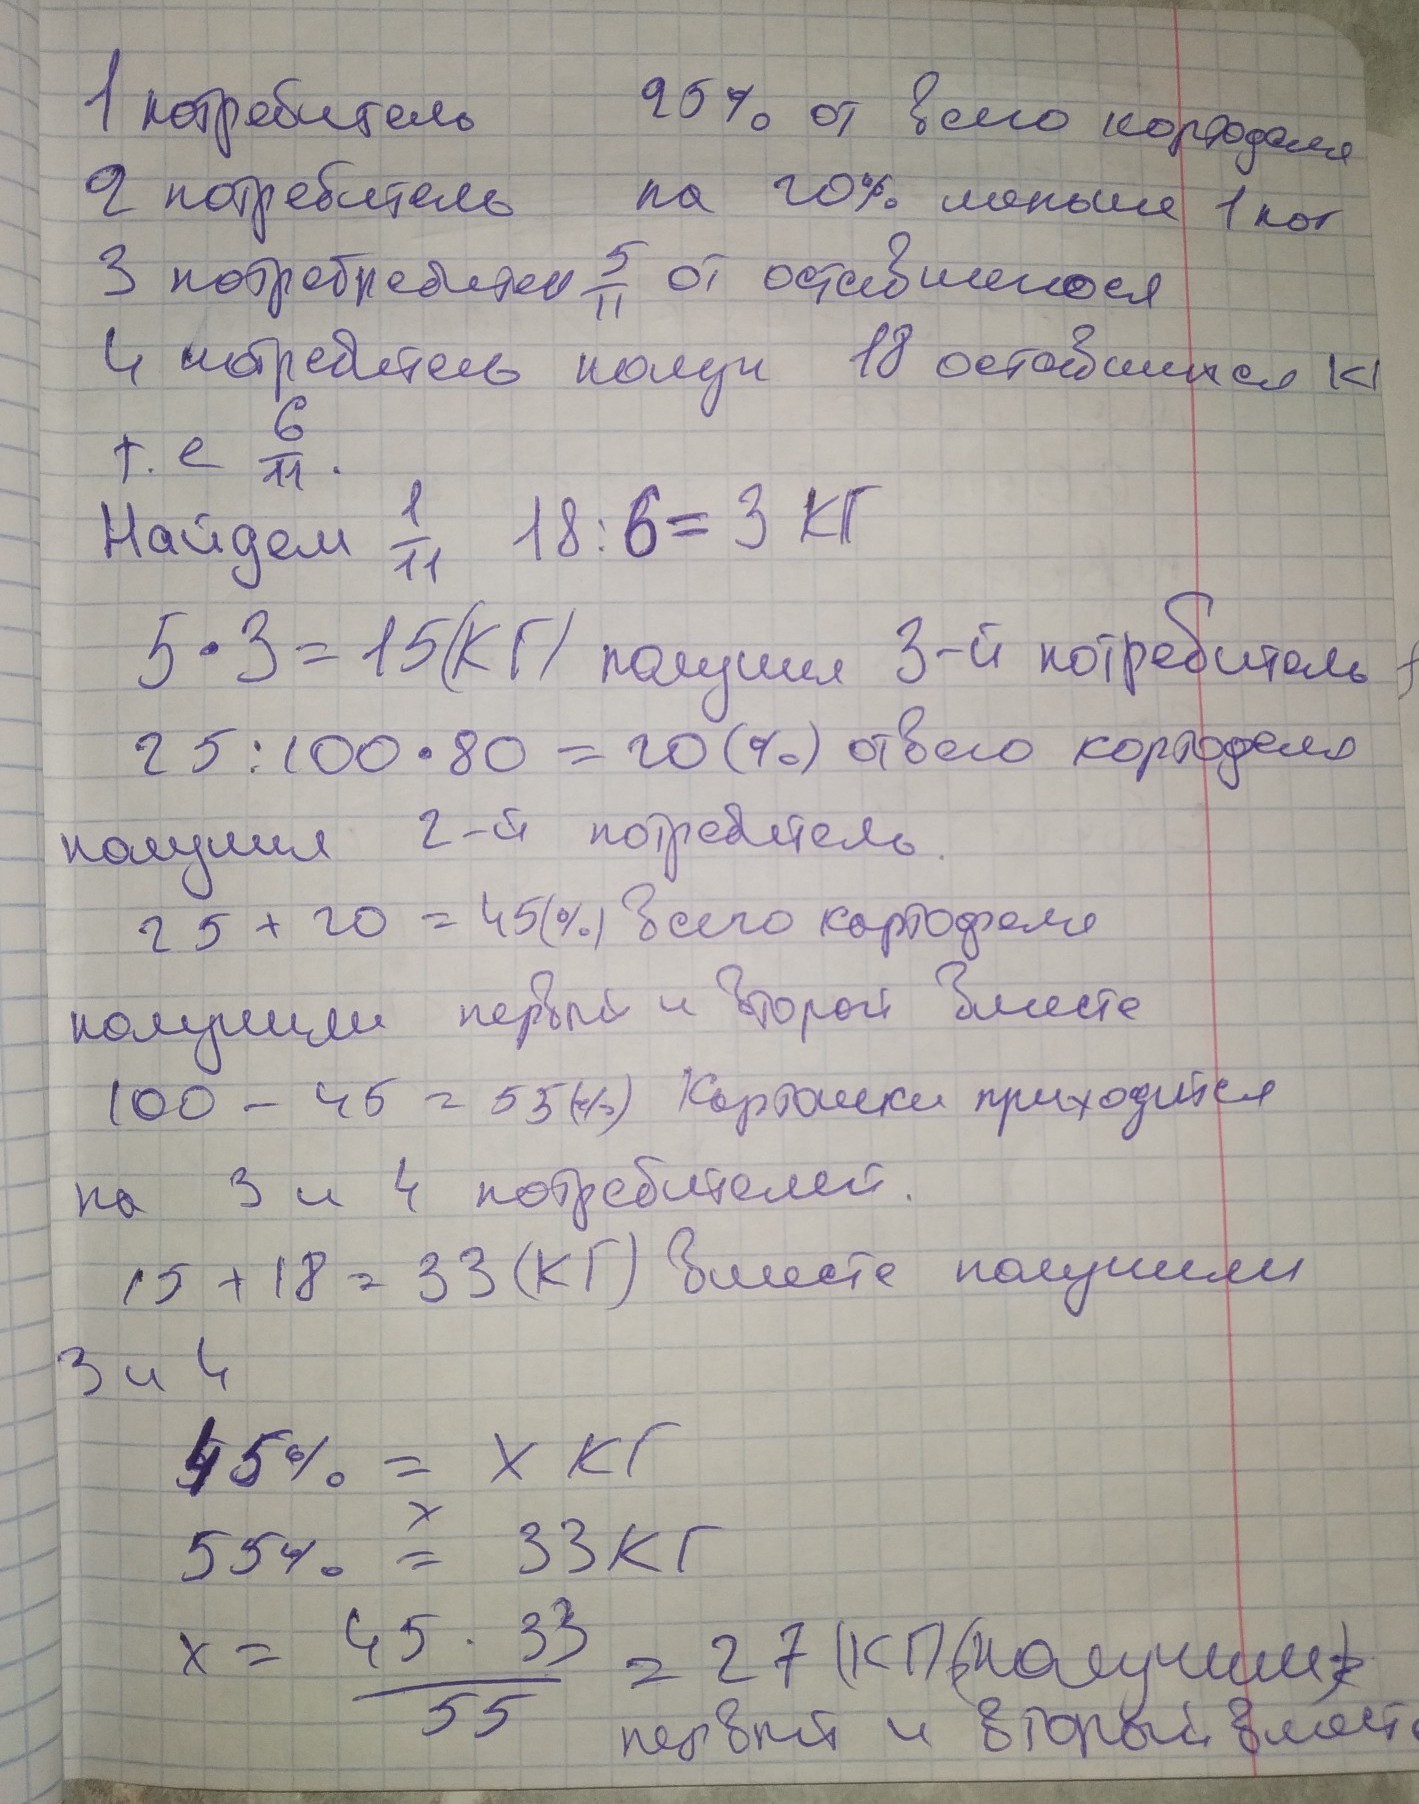 1 потребитель 25% от всего картофеля
2 потребитель на 20% меньше 1 пот
3 потребребител 5/11 от оставшегося
4 потребитель получ 18 оставшихся кг
т.е 6/11.
Найдем 1/11 18:6=3 КГ
5·3=15(КГ) получил 3-й потребитель
25:100·80=20(%) от всего картофеля
получил 2-й потребитель.
25+20=45(%) всего картофеля
получили первый и второй вместе
100-45=55(%) Картошки приходится
на 3 и 4 потребителей.
15+18=33(КГ) вместе получили
3 и 4
45% = х КГ
х
55% = 33КГ
х = 45·33/55 = 27(КГ) получили
первый и второй вместе